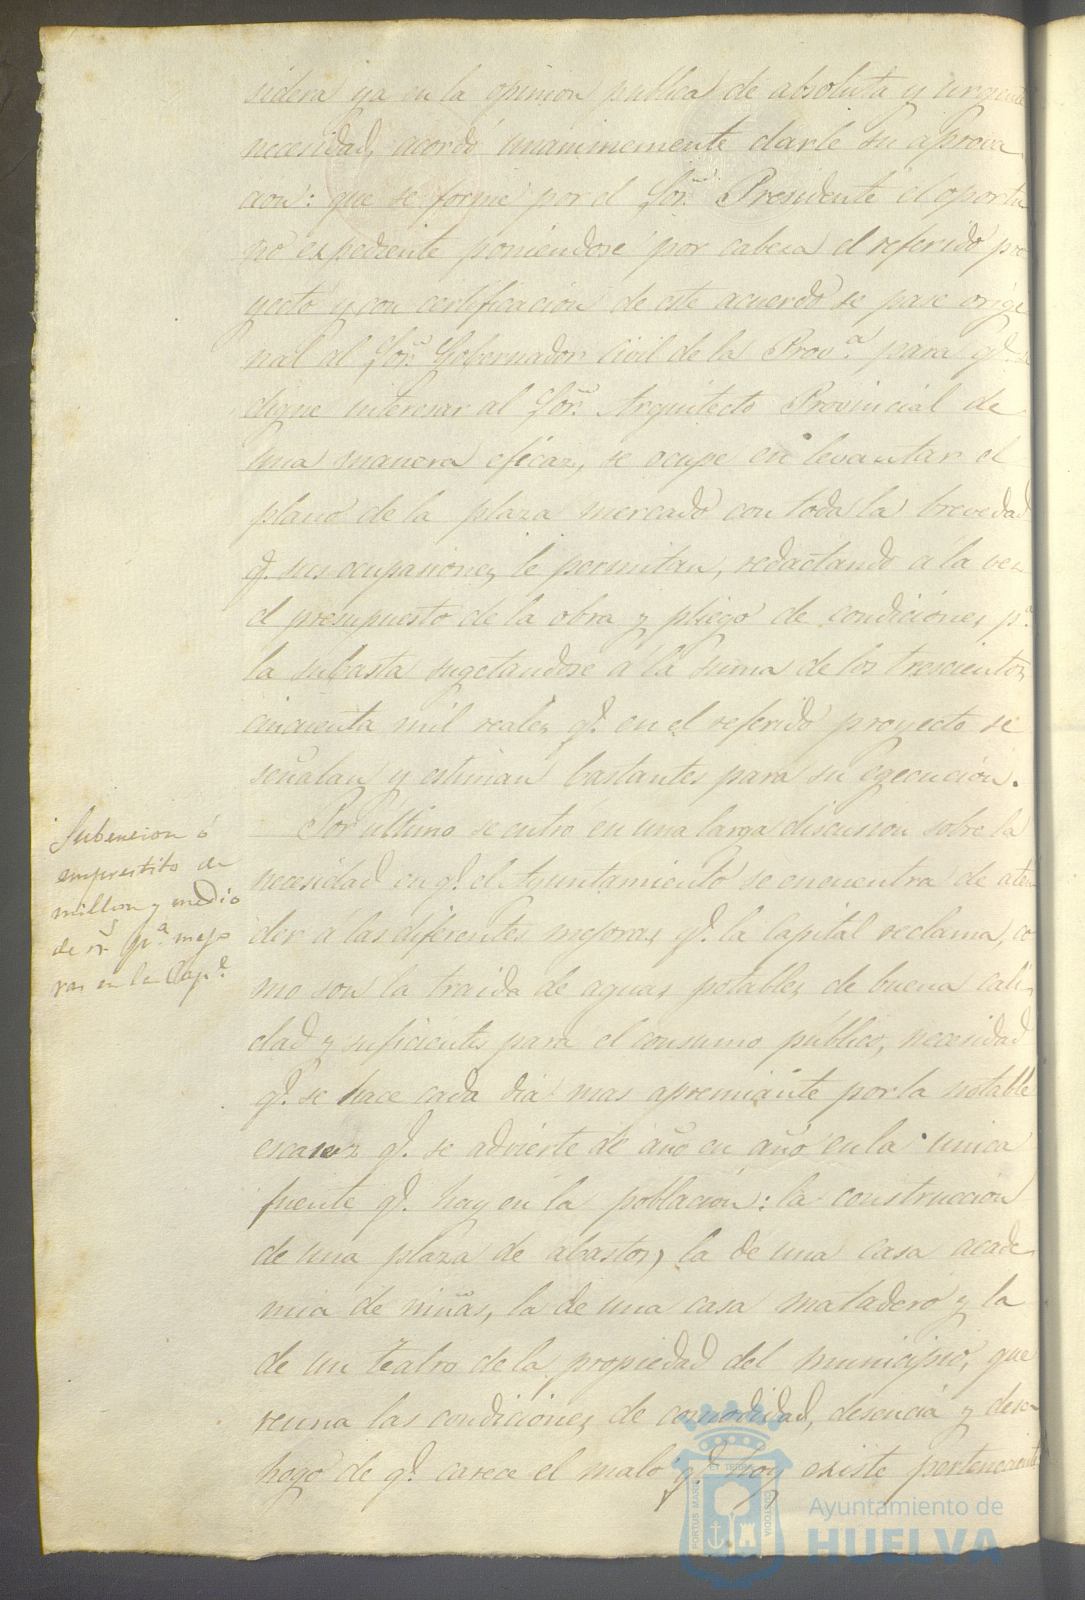 sidera ya en la opinion publica de absoluta y urgente
necesidad, acordó unanimemente darle su aprova
cion: que se forme por el Sor. Presidente el oportu
no expediente poniendose por cabeza el referido pro
yecto y con certificacion de este acuerdo se pase origi
nal al Sor. Gobernador Civil de la Prov.ª para q.e se
digne interesar al Sor. Arquitecto Provincial de
una manera eficaz, se ocupe en levantar el
plano de la plaza mercado con toda la brevedad
q.e sus ocupaciones le permitan, redactando á la vez
el presupuesto de la obra y pliego de condiciones p.ª
la subasta sugetandose á la suma de los trescientos
cincuenta mil reales q.e en el referido proyecto se
señalan y estiman bastantes para su egecucion.
Subencion ó
emprestito de
millon y medio
de r.s p.ª mejo
ras en la Cap.l
Por último se entro en una larga discusion sobre la
necesidad en q.e el Ayuntamiento se encuentra de aten
der á las diferentes mejoras q.e la Capital reclama, co
mo son la traida de aguas potables de buena cali
dad y suficientes para el consumo público, necesidad
q.e se hace cada dia mas apremiante por la notable
escasez q.e se advierte de año en año en la unica
fuente q.e hay en la poblacion: la construccion
de una plaza de abastos, la de una casa acade
mia de niñas, la de una casa matadero y la
de un teatro de la propiedad del municipio, que
reuna las condiciones de comodidad, desencia y desa
hogo de q.e carece el malo q.e hoy existe perteneciente
PORTUS MARIS ET TERRAE CUSTODIA
Ayuntamiento de
HUELVA